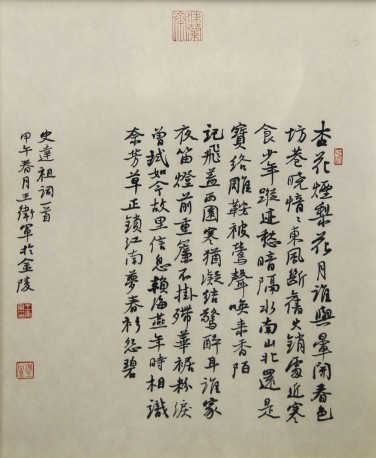 杏花煙梨花月誰與暈開春色
坊巷曉愔〻東風斷舊火銷處近寒
食少年蹤迹愁暗隔水南山北還是
寶絡雕鞍被鶯聲喚來香陌
記飛蓋西園寒猶凝結驚醉耳誰家
夜笛燈前重簾不掛殢華裾粉淚
曾拭如今故里信息賴海燕年時相識
奈芳草正鎖江南夢春衫怨碧
史達祖詞一首
甲午春月王衛軍於金陵